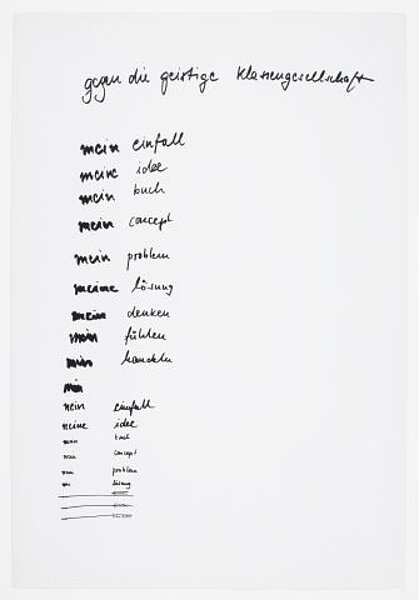 gegen die geistige klassengesellschaft
mein einfall
meine idee
mein buch
mein concept
mein problem
meine lösung
mein denken
mein fühlen
mein handeln
mein einfall
meine idee
buch
concept
problem
lösung